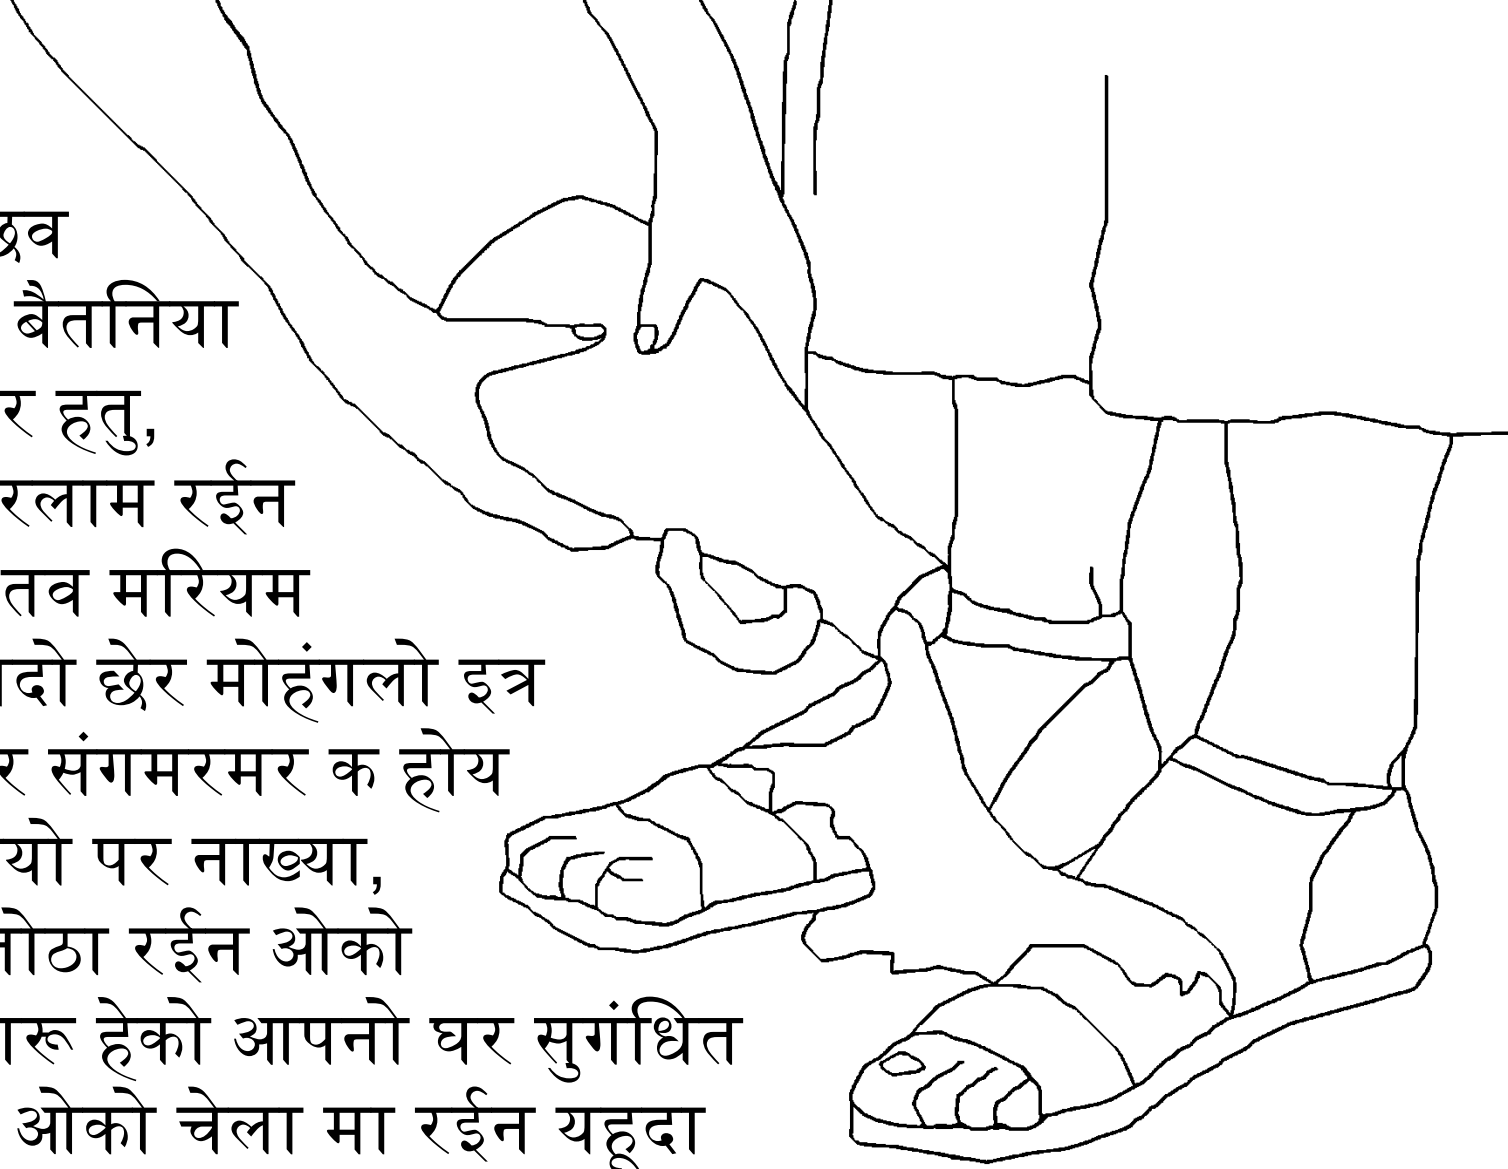 बैतनिया
हतु,
रईन
तव मरियम
छेर मोहंगलो इत्र
संगमरमर क होय
पर नाख्या,
रईन ओको
हेको आपनो घर सुगंधित
ओको चेला मा रईन यहूदा